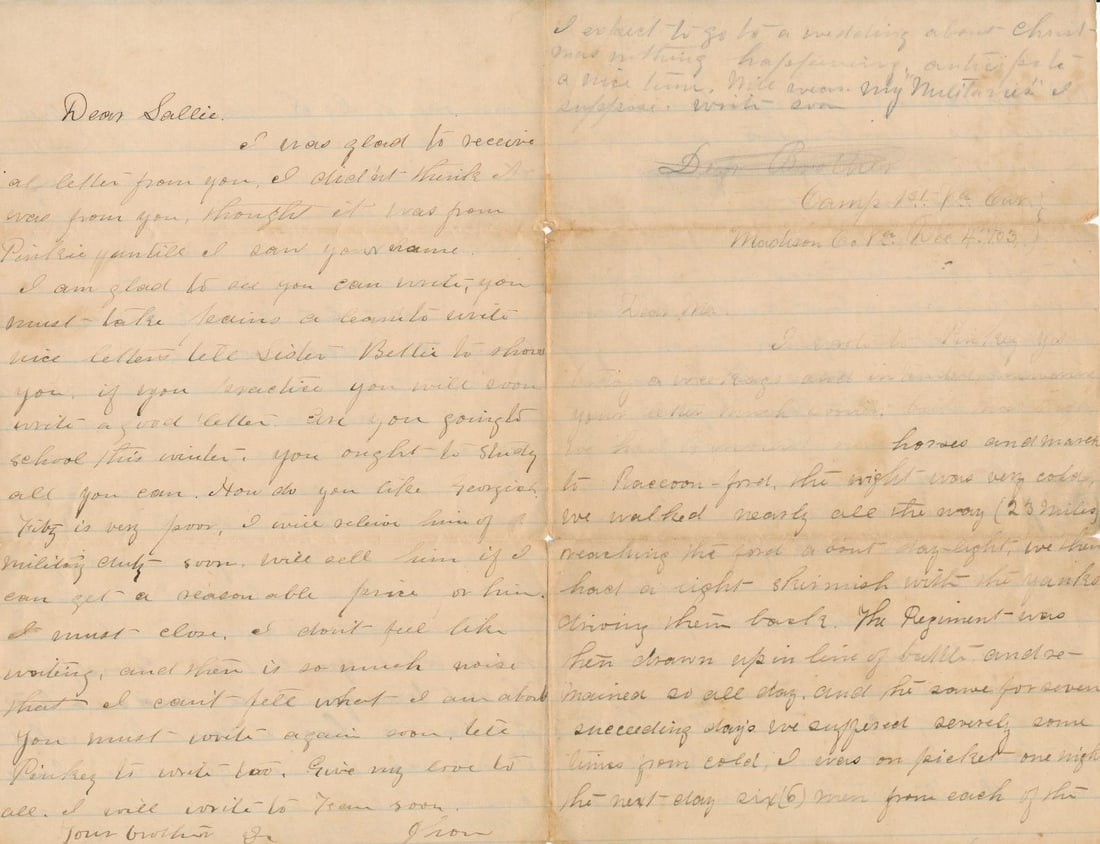 Dear Sallie.
I was glad to receive
a letter from you, I didn't think it
was from you, thought it was from
Pinkie yuntill I saw your name.
I am glad to see you can write, you
must take pains a learn to write
nice letters tell Sister Bettie to show
you, if you practice you will soon
write a good letter. Are you going to
school this winter, you ought to study
all you can. How do you like
Fitz is very poor, I will relieve him of
military duty soon. will sell him if I
can get a reasonable price for him.
I must close, I don't feel like
writing, and there is so much noise
that I can't tell what I am about
You must write again soon, tell
Pinkey to write too. Give my love to
all. I will write to soon.
Your brother
I expect to go to a wedding about Christ-
mas nothing happening, anticipate
a nice time. Will wear my "Militaries" I
suppose. write soon
Dear Brother
Camp 1st Va Cav.
Madison Co Va. Dec 4. '63
Dear Ma.
I wrote to Pinkey
a week ago and
your letter
horses and march
to Raccoon-ford, the night was very cold,
we walked nearly all the way (23 miles)
reaching the ford about day-light, we then
had a light skirmish with the yanks
driving them back. The Regiment was
then drawn up in line of battle and re-
mained so all day, and the same for seven
succeeding days. we suffered severely some
times from cold, I was on picket one night
the next day six (6) men from each of the